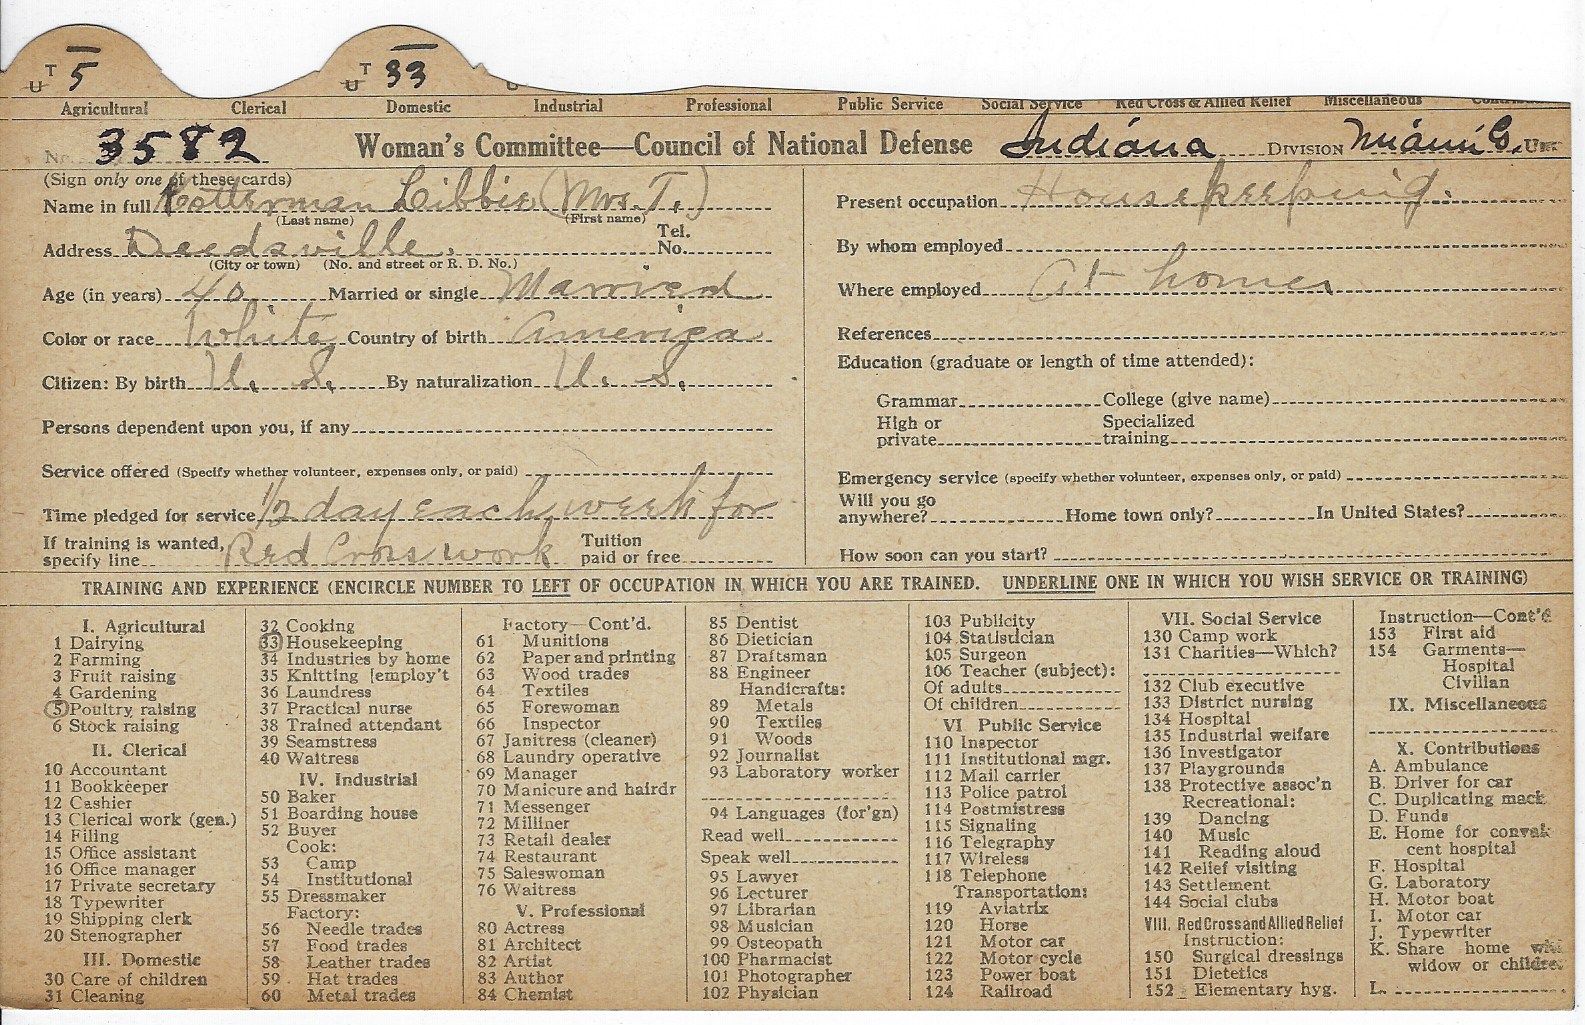 T 5 T 33
U U
Agricultural Clerical Domestic Industrial Professional Public Service Social Service Red Cross & Allied Relief Miscellaneous
No. 3582 Woman's Committee—Council of National Defense Indiana DIVISION Miami Co.
(Sign only one of these cards)
Name in full Kotterman Libbie (Mrs. T.)
(Last name) (First name)
Address Deedsville. Tel. No.
(City or town) (No. and street or R. D. No.)
Age (in years) 40 Married or single Married
Color or race White Country of birth America
Citizen: By birth U. S. By naturalization U. S.
Persons dependent upon you, if any
Service offered (Specify whether volunteer, expenses only, or paid)
Time pledged for service 1/2 day each week for
If training is wanted, specify line Red Cross work Tuition paid or free
Present occupation Housekeeping.
By whom employed
Where employed At home
References
Education (graduate or length of time attended):
Grammar College (give name)
High or private Specialized training
Emergency service (specify whether volunteer, expenses only, or paid)
Will you go anywhere? Home town only? In United States?
How soon can you start?
TRAINING AND EXPERIENCE (ENCIRCLE NUMBER TO LEFT OF OCCUPATION IN WHICH YOU ARE TRAINED. UNDERLINE ONE IN WHICH YOU WISH SERVICE OR TRAINING)
I. Agricultural
1 Dairying
2 Farming
3 Fruit raising
4 Gardening
5 Poultry raising
6 Stock raising
II. Clerical
10 Accountant
11 Bookkeeper
12 Cashier
13 Clerical work (gen.)
14 Filing
15 Office assistant
16 Office manager
17 Private secretary
18 Typewriter
19 Shipping clerk
20 Stenographer
III. Domestic
30 Care of children
31 Cleaning
32 Cooking
33 Housekeeping
34 Industries by home
35 Knitting [employ't
36 Laundress
37 Practical nurse
38 Trained attendant
39 Seamstress
40 Waitress
IV. Industrial
50 Baker
51 Boarding house
52 Buyer
Cook:
53 Camp
54 Institutional
55 Dressmaker
Factory:
56 Needle trades
57 Food trades
58 Leather trades
59 Hat trades
60 Metal trades
Factory—Cont'd.
61 Munitions
62 Paper and printing
63 Wood trades
64 Textiles
65 Forewoman
66 Inspector
67 Janitress (cleaner)
68 Laundry operative
69 Manager
70 Manicure and hairdr
71 Messenger
72 Milliner
73 Retail dealer
74 Restaurant
75 Saleswoman
76 Waitress
V. Professional
80 Actress
81 Architect
82 Artist
83 Author
84 Chemist
85 Dentist
86 Dietician
87 Draftsman
88 Engineer
Handicrafts:
89 Metals
90 Textiles
91 Woods
92 Journalist
93 Laboratory worker
94 Languages (for'gn)
Read well
Speak well
95 Lawyer
96 Lecturer
97 Librarian
98 Musician
99 Osteopath
100 Pharmacist
101 Photographer
102 Physician
103 Publicity
104 Statistician
105 Surgeon
106 Teacher (subject):
Of adults
Of children
VI Public Service
110 Inspector
111 Institutional mgr.
112 Mail carrier
113 Police patrol
114 Postmistress
115 Signaling
116 Telegraphy
117 Wireless
118 Telephone
Transportation:
119 Aviatrix
120 Horse
121 Motor car
122 Motor cycle
123 Power boat
124 Railroad
VII. Social Service
130 Camp work
131 Charities—Which?
132 Club executive
133 District nursing
134 Hospital
135 Industrial welfare
136 Investigator
137 Playgrounds
138 Protective assoc'n
Recreational:
139 Dancing
140 Music
141 Reading aloud
142 Relief visiting
143 Settlement
144 Social clubs
VIII. Red Cross and Allied Relief
Instruction:
150 Surgical dressings
151 Dietetics
152 Elementary hyg.
Instruction—Cont'd
153 First aid
154 Garments—
Hospital
Civilian
IX. Miscellaneous
X. Contributions
A. Ambulance
B. Driver for car
C. Duplicating mach.
D. Funds
E. Home for conval
cent hospital
F. Hospital
G. Laboratory
H. Motor boat
I. Motor car
J. Typewriter
K. Share home
widow or children
L.